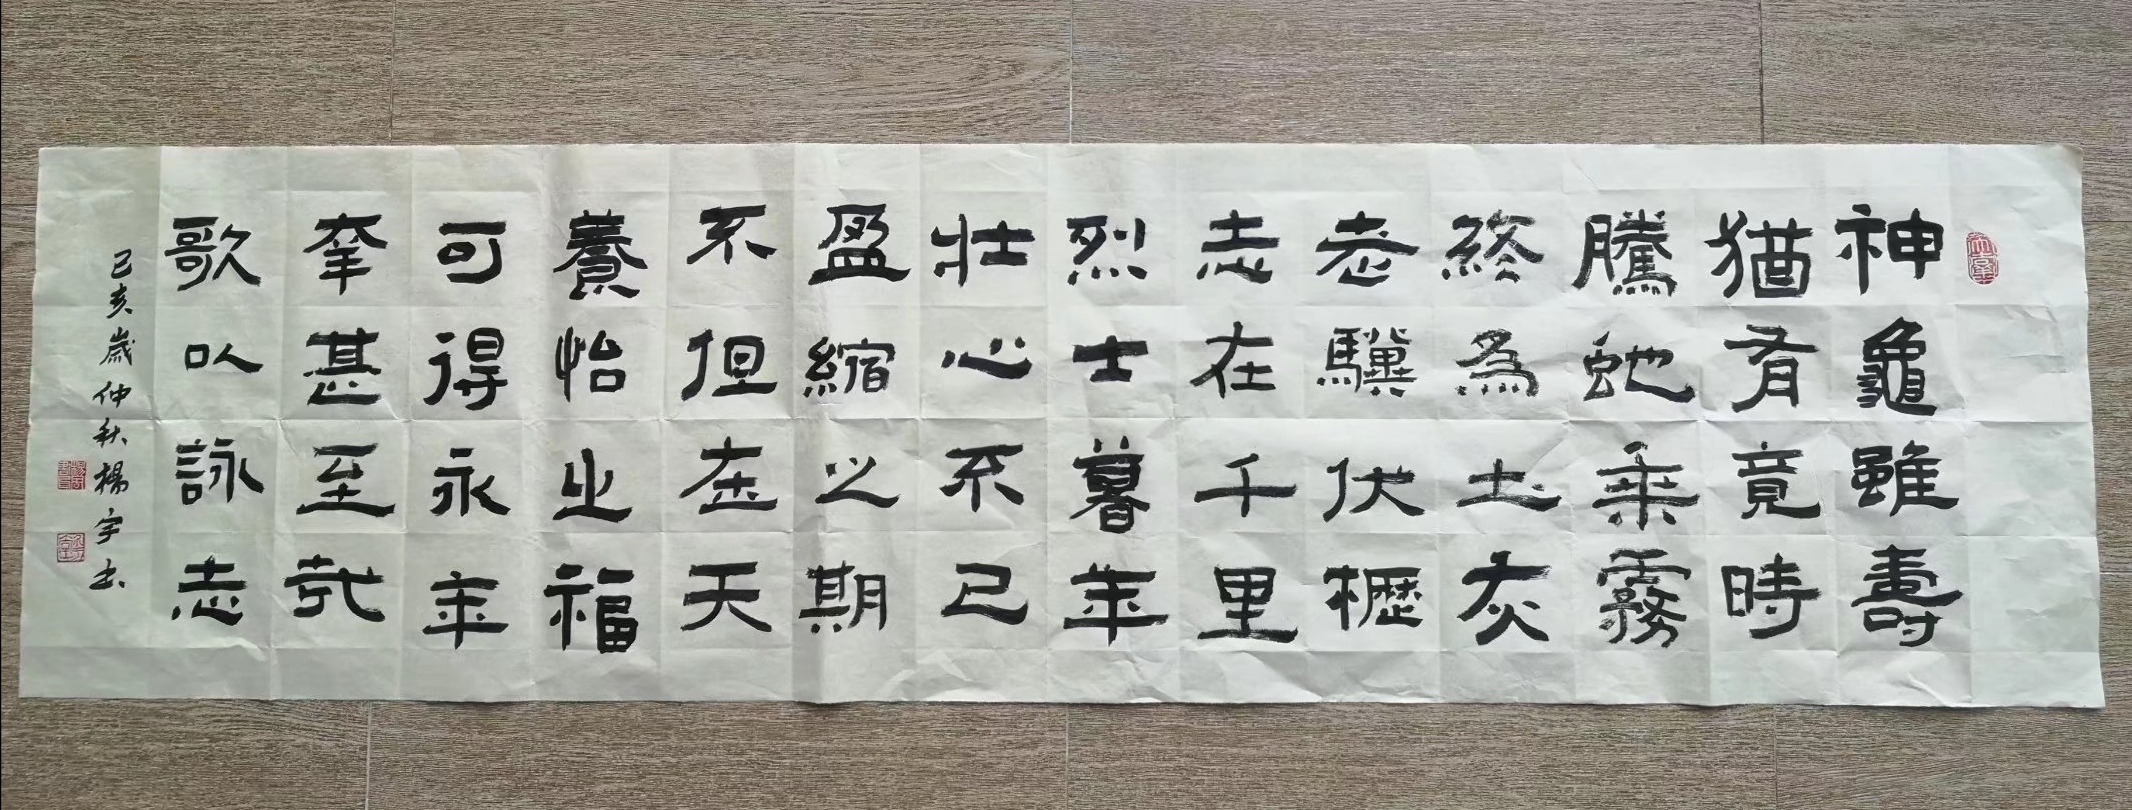 神龜雖壽
猶有竟時
騰虵乘霧
終為土灰
老驥伏櫪
志在千里
烈士暮年
壯心不已
盈縮之期
不但在天
養怡之福
可得永年
幸甚至哉
歌以詠志
己亥歲仲秋楊宇書